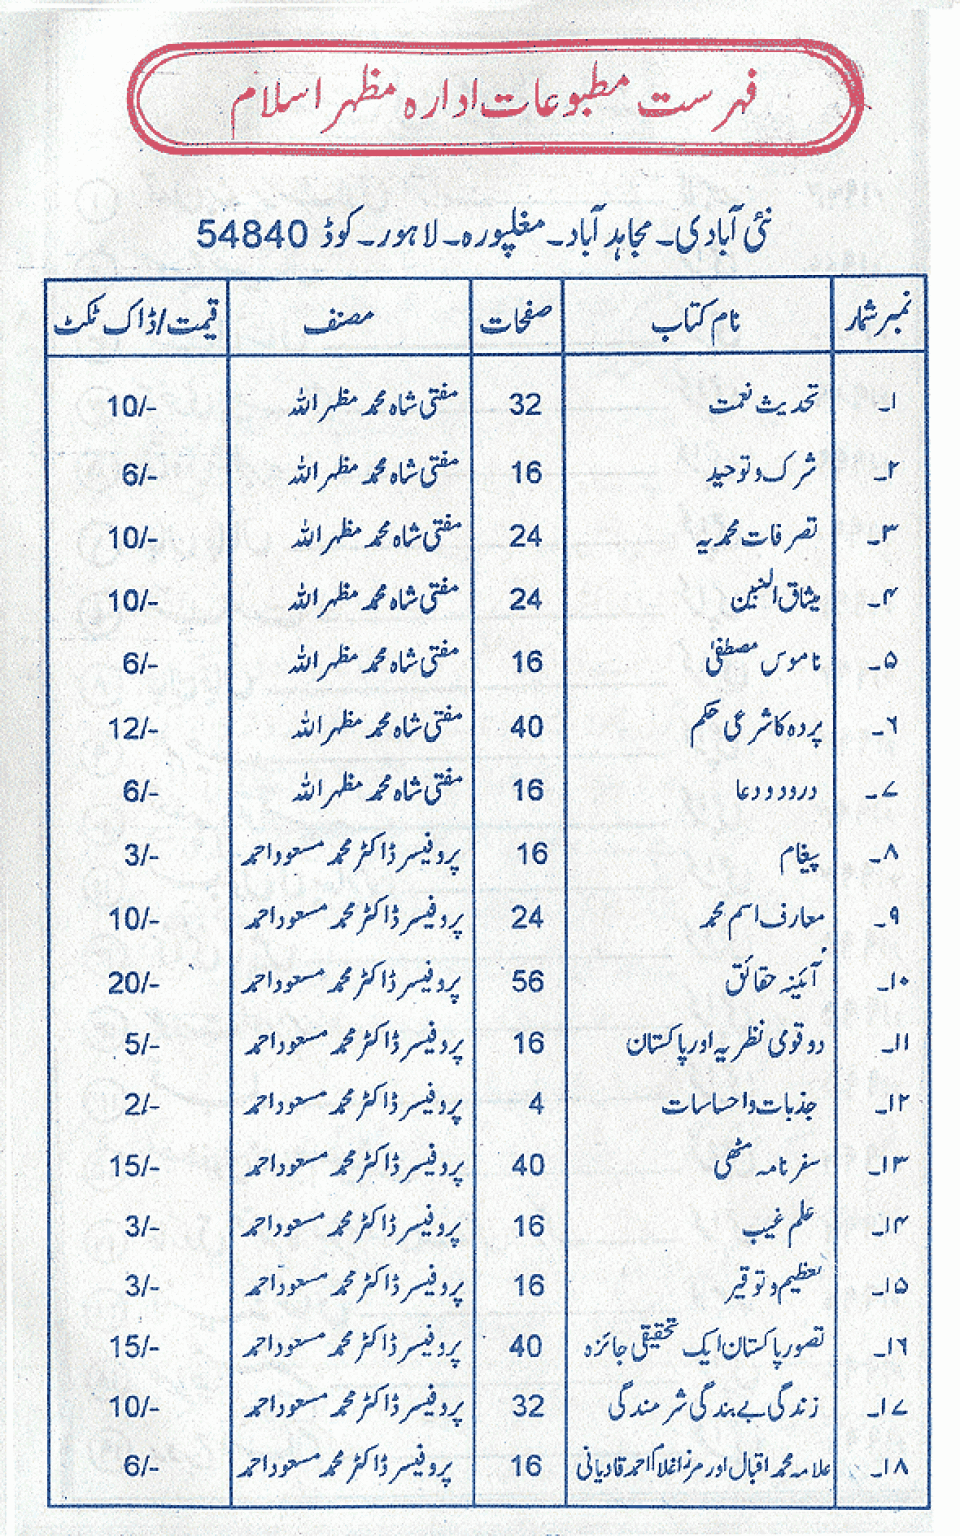 فہرست مطبوعات ادارہ مظہر اسلام
نئی آبادی۔ مجاہد آباد۔ مغلپورہ۔ لاہور۔ کوڈ 54840
نمبر شمار نام کتاب صفحات مصنف قیمت/ڈاک ٹکٹ
۱۔ تحدیث نعمت 32 مفتی شاہ محمد مظہر اللہ 10/-
۲۔ شرک و توحید 16 مفتی شاہ محمد مظہر اللہ 6/-
۳۔ تصرفات محمدیہ 24 مفتی شاہ محمد مظہر اللہ 10/-
۴۔ میثاق النبین 24 مفتی شاہ محمد مظہر اللہ 10/-
۵۔ ناموس مصطفیٰ 16 مفتی شاہ محمد مظہر اللہ 6/-
۶۔ پردہ کا شرعی حکم 40 مفتی شاہ محمد مظہر اللہ 12/-
۷۔ درود و دعا 16 مفتی شاہ محمد مظہر اللہ 6/-
۸۔ پیغام 16 پروفیسر ڈاکٹر محمد مسعود احمد 3/-
۹۔ معارف اسم محمد 24 پروفیسر ڈاکٹر محمد مسعود احمد 10/-
۱۰۔ آئینہ حقائق 56 پروفیسر ڈاکٹر محمد مسعود احمد 20/-
۱۱۔ دو قومی نظریہ اور پاکستان 16 پروفیسر ڈاکٹر محمد مسعود احمد 5/-
۱۲۔ جذبات و احساسات 4 پروفیسر ڈاکٹر محمد مسعود احمد 2/-
۱۳۔ سفر نامہ مٹھی 40 پروفیسر ڈاکٹر محمد مسعود احمد 15/-
۱۴۔ علم غیب 16 پروفیسر ڈاکٹر محمد مسعود احمد 3/-
۱۵۔ تعظیم و توقیر 16 پروفیسر ڈاکٹر محمد مسعود احمد 3/-
۱۶۔ تصور پاکستان ایک تحقیقی جائزہ 40 پروفیسر ڈاکٹر محمد مسعود احمد 15/-
۱۷۔ زندگی بے بندگی شرمندگی 32 پروفیسر ڈاکٹر محمد مسعود احمد 10/-
۱۸۔ علامہ محمد اقبال اور مرزا غلام احمد قادیانی 16 پروفیسر ڈاکٹر محمد مسعود احمد 6/-